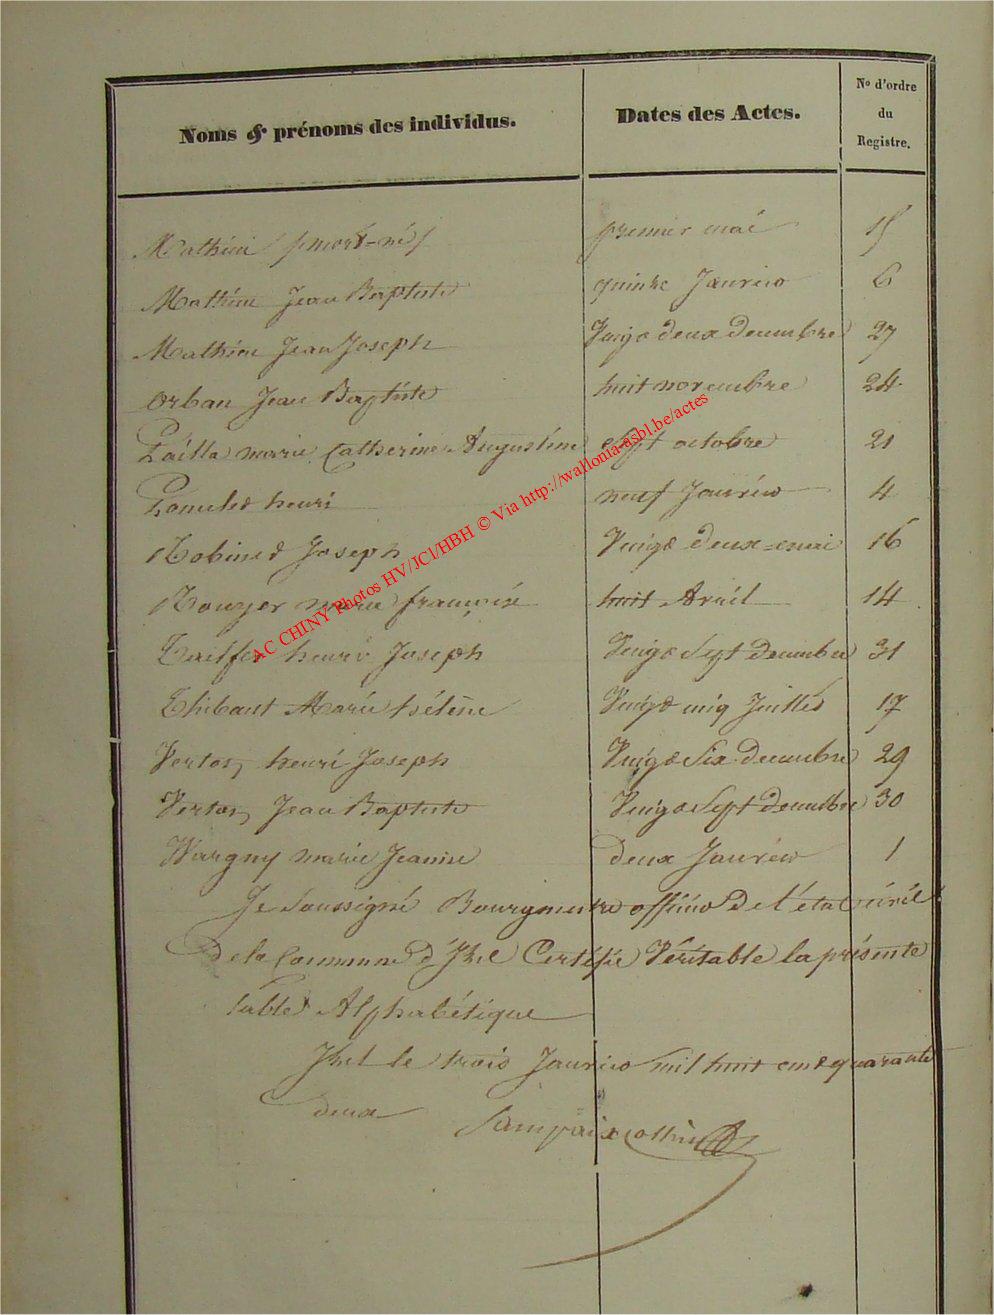 Noms & prénoms des individus. Dates des Actes. No d'ordre du Registre.
Mathieu (mort-né) premier mai 15
Mathieu Jean Baptiste quinze Janvier 6
Mathieu Jean Joseph Vingt deux Decembre 27
Orban Jean Baptiste huit novembre 24
Pailla marie Catherine Augustine Sept octobre 21
henri neuf Janvier 4
Robinet Joseph Vingt deux mai 16
Rouyer marie françoise huit Avril 14
henri Joseph Vingt Sept Decembre 31
Thibaut Marie hélène Vingt cinq Juillet 17
henri Joseph Vingt Six Decembre 29
Jean Baptiste Vingt Sept Decembre 30
Wargny marie Jeanne deux Janvier 1
Je Soussigné Bourgmestre officier De l'état civil
De la Commune d'Izel Certifie Véritable la présente
table Alphabétique
Izel le trois Janvier mil huit cent quarante
deux
AC CHINY Photos HV/JCl/HBH © Via http://wallonia-asbl.be/actes